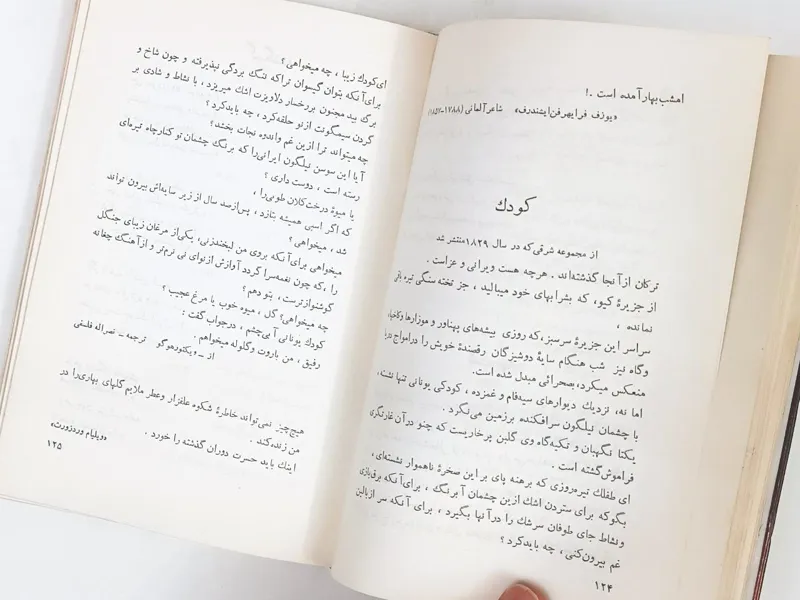 امشب بهار آمده است . !
«یوزف فرایهر فن ایشندرف» شاعر آلمانی (۱۷۸۸-۱۸۵۷)
کودك
از مجموعه شرقی که در سال ۱۸۲۹ منتشر شد
ترکان از آنجا گذشته‌اند . هرچه هست ویرانی و عزاست .
از جزیرهٔ کیو، که بشرابهای خود میبالید ، جز تخته سنگی تیره باقی
نمانده ،
سراسر این جزیرهٔ سرسبز، که روزی بیشه‌های پهناور و موزارها وکاخها،
وگاه نیز شب هنگام سایهٔ دوشیزگان رقصندهٔ خویش را درامواج دریا
منعکس میکرد، بصحرائی مبدل شده است.
اما نه، نزدیك دیوارهای سیه‌فام و غمزده ، کودکی یونانی تنها نشسته،
با چشمان نیلگون سرافکنده برزمین می‌نگرد .
یکتا نگهبان و تکیه‌گاه وی گلبن پرخاریست که چنو در آن غارتگری
فراموش گشته است .
ای طفلك تیره‌روزی که برهنه پای بر این صخرهٔ ناهموار نشسته‌ای ،
بگو که برای ستردن اشك ازین چشمان آبرنگ ، برای آنکه برق بازی
ونشاط جای طوفان سرشك را در آنها بگیرد ، برای آنکه سر از بالین
غم بیرون کنی ، چه باید کرد ؟
۱۲۴
ای کودك زیبا ، چه میخواهی ؟
برای آنکه بتوان گیسوان ترا که ننگ بردگی نپذیرفته و چون شاخ و
برگ بید مجنون بر رخسار دلاویزت اشك میریزد ، با نشاط و شادی بر
گردن سیمگونت از نو حلقه کرد ، چه باید کرد ؟
چه میتواند ترا از ین غم واندوه نجات بخشد ؟
آیا این سوسن نیلگون ایرانی را که برنگ چشمان تو کنار چاه تیره‌ای
رسته است ، دوست داری ؟
یا میوهٔ درخت کلان طوبی را ،
که اگر اسبی همیشه بتازد ، پس از صد سال از زیر سایه‌اش بیرون نتواند
شد ، میخواهی ؟
میخواهی برای آنکه بروی من لبخند زنی، یکی از مرغان زیبای جنگل
را ، که چون نغمه‌سرا گردد آوازش از نوای نی نرم‌تر و از آهنگ چغانه
گوشنوازترست ، بتو دهم ؟
چه میخواهی؟ گل ، میوه خوب یا مرغ عجیب ؟
کودك یونانی آبی چشم ، در جواب گفت :
رفیق ، من باروت وگلوله میخواهم .
از ــ ویکتورهوگو ترجمه ــ نصراله فلسفی
هیچ چیز نمی‌تواند خاطرهٔ شکوه علفزار وعطر ملایم گلهای بهاری را در
من زنده کند .
اینك باید حسرت دوران گذشته را خورد .
«ویلیام وردزورث»
۱۲۵